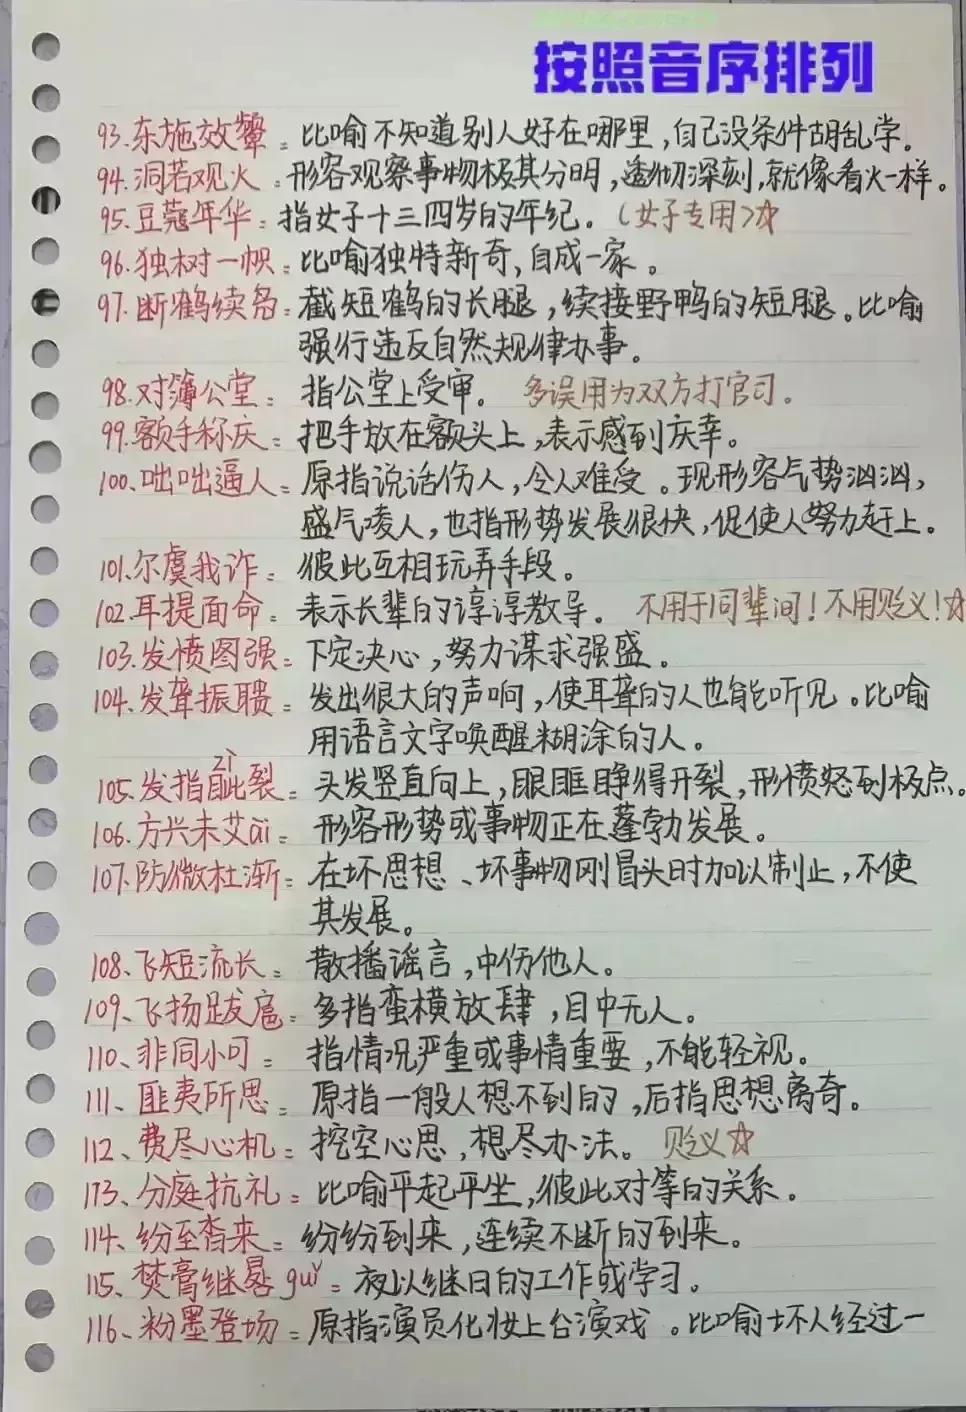 按照音序排列
93.东施效颦：比喻不知道别人好在哪里，自己没条件胡乱学。
94.洞若观火：形容观察事物极其分明，透彻深刻，就像看火一样。
95.豆蔻年华：指女子十三四岁的年纪。（女子专用）☆
96.独树一帜：比喻独特新奇，自成一家。
97.断鹤续凫：截短鹤的长腿，续接野鸭的短腿。比喻
强行违反自然规律办事。
98.对簿公堂：指公堂上受审。 多误用为双方打官司。
99.额手称庆：把手放在额头上，表示感到庆幸。
100.咄咄逼人：原指说话伤人，令人难受。现形容气势汹汹，
盛气凌人，也指形势发展很快，促使人努力赶上。
101.尔虞我诈：彼此互相玩弄手段。
102.耳提面命：表示长辈的谆谆教导。 不用于同辈间！不用贬义！☆
103.发愤图强：下定决心，努力谋求强盛。
104.发聋振聩：发出很大的声响，使耳聋的人也能听见。比喻
用语言文字唤醒糊涂的人。
zì
105.发指眦裂：头发竖直向上，眼眶睁得开裂，形愤怒到极点。
106.方兴未艾ài：形容形势或事物正在蓬勃发展。
107.防微杜渐：在坏思想、坏事物刚冒头时加以制止，不使
其发展。
108、飞短流长：散播谣言，中伤他人。
109、飞扬跋扈：多指蛮横放肆，目中无人。
110、非同小可：指情况严重或事情重要，不能轻视。
111、匪夷所思：原指一般人想不到的，后指思想离奇。
112、费尽心机：挖空心思，想尽办法。 贬义☆
113、分庭抗礼：比喻平起平坐，彼此对等的关系。
114、纷至沓来：纷纷到来，连续不断的到来。
115、焚膏继晷guǐ：夜以继日的工作或学习。
116、粉墨登场：原指演员化妆上台演戏。比喻坏人经过一